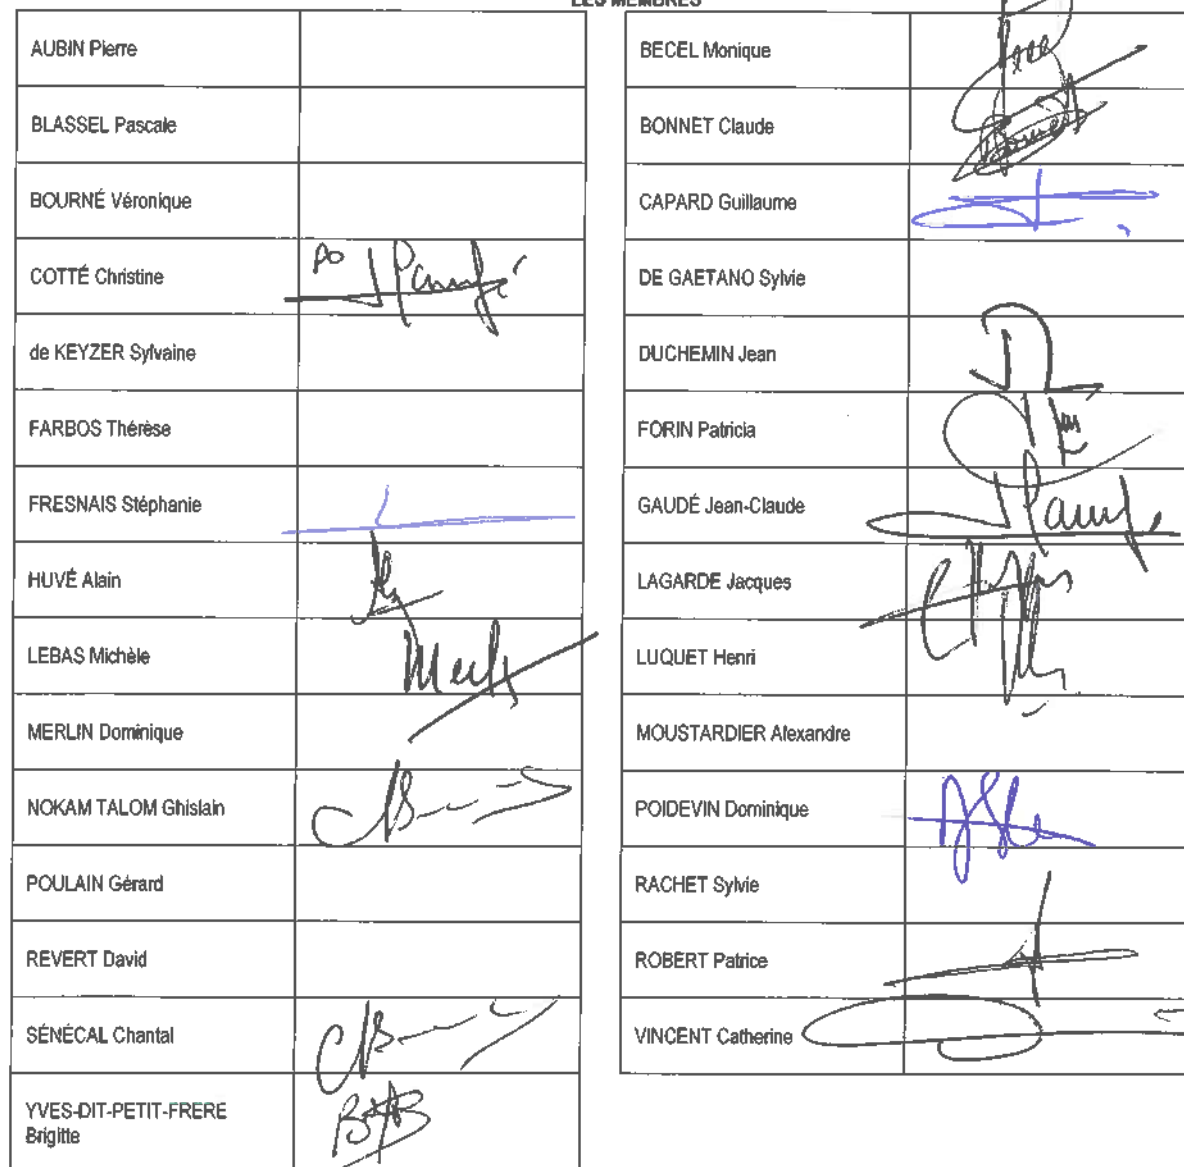 LES MEMBRES
AUBIN Pierre
BLASSEL Pascale
BOURNÉ Véronique
COTTÉ Christine
PO
de KEYZER Sylvaine
FARBOS Thérèse
FRESNAIS Stéphanie
HUVÉ Alain
LEBAS Michèle
MERLIN Dominique
NOKAM TALOM Ghislain
POULAIN Gérard
REVERT David
SÉNÉCAL Chantal
YVES-DIT-PETIT-FRERE
Brigitte
BECEL Monique
BONNET Claude
CAPARD Guillaume
DE GAETANO Sylvie
DUCHEMIN Jean
FORIN Patricia
GAUDÉ Jean-Claude
LAGARDE Jacques
LUQUET Henri
MOUSTARDIER Alexandre
POIDEVIN Dominique
RACHET Sylvie
ROBERT Patrice
VINCENT Catherine